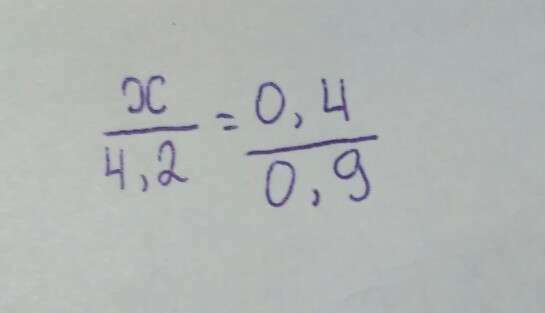 x/4,2 = 0,4/0,9